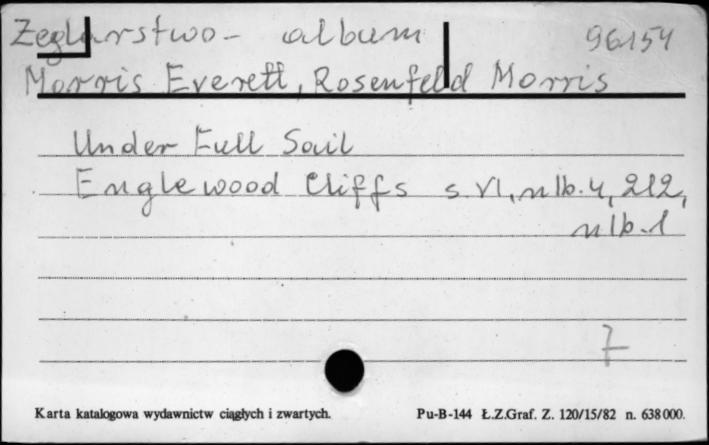 Żeglarstwo - album 96154
Morris Everett, Rosenfeld Morris
Under Full Sail
Englewood Cliffs s. VI, nlb. 4, 212,
nlb. 1
7
Karta katalogowa wydawnictw ciągłych i zwartych. Pu-B-144 Ł.Z.Graf. Z. 120/15/82 n. 638 000.